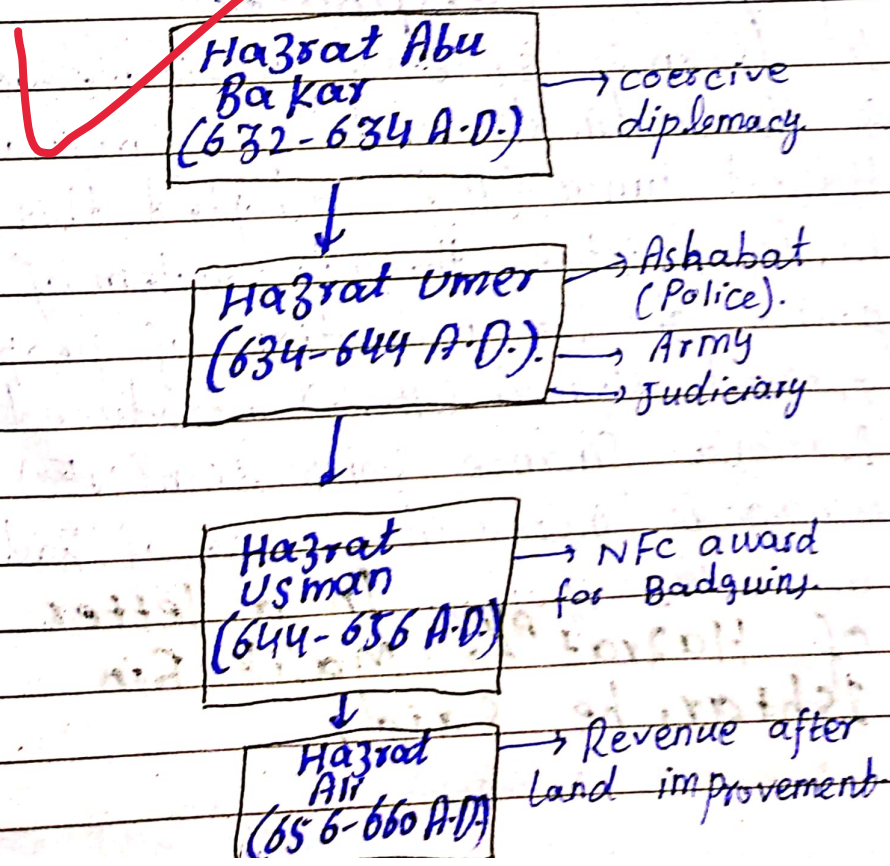 Hazrat Abu
Bakar
(632-634 A.D.)
→ coercive
diplomacy.
Hazrat Umer
(634-644 A.D.).
→ Ashabat
(Police).
→ Army
→ Judiciary
Hazrat
Usman
(644-656 A.D.)
→ NFC award
for Badquins.
Hazrat
Ali
(656-660 A.D)
→ Revenue after
land improvement